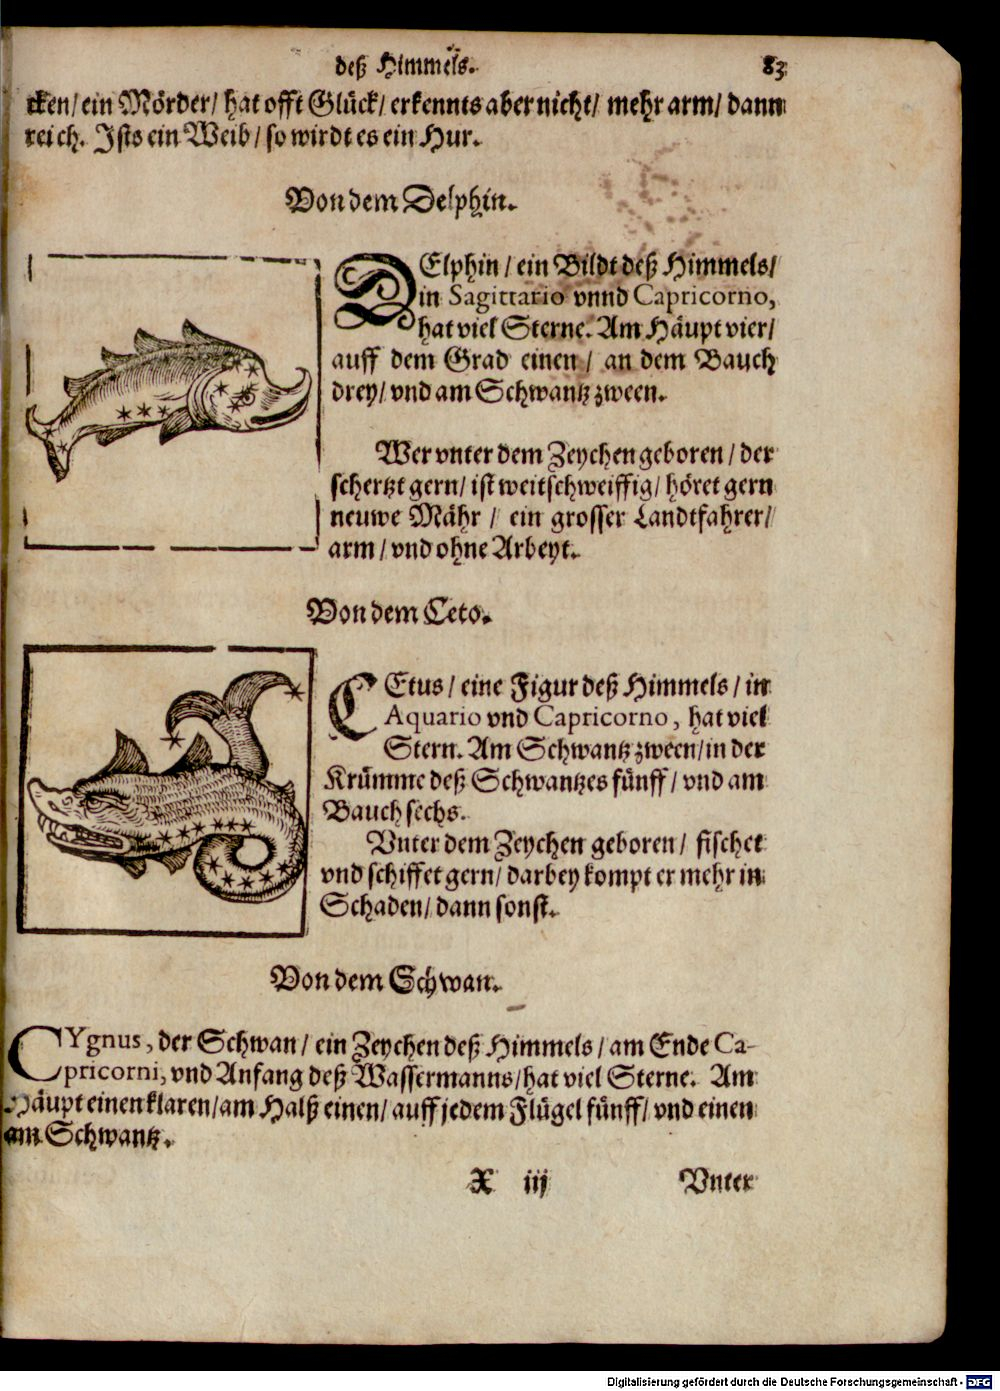 deß Himmels. 83
cken/ ein Mörder/ hat offt Glück/ erkennts aber nicht/ mehr arm/ dann
reich. Ists ein Weib/ so wirdt es ein Hur.
Von dem Delphin.
DElphin/ ein Bildt deß Himmels/
in Sagittario vnnd Capricorno,
hat viel Sterne. Am Häupt vier/
auff dem Grad einen/ an dem Bauch
drey/ vnd am Schwantz zween.
Wer vnter dem Zeychen geboren/ der
schertzt gern/ ist weitschweiffig/ höret gern
neuwe Mähr/ ein grosser Landtfahrer/
arm/ vnd ohne Arbeyt.
Von dem Ceto.
CEtus/ eine Figur deß Himmels/ in
Aquario vnd Capricorno, hat viel
Stern. Am Schwantz zween/ in der
Krümme deß Schwantzes fünff/ vnd am
Bauch sechs.
Vnter dem Zeychen geboren/ fischet
vnd schiffet gern/ darbey kompt er mehr in
Schaden/ dann sonst.
Von dem Schwan.
CYgnus, der Schwan/ ein Zeychen deß Himmels/ am Ende Ca-
pricorni, vnd Anfang deß Wassermanns/ hat viel Sterne. Am
Häupt einen klaren/ am Halß einen/ auff jedem Flügel fünff/ vnd einen
am Schwantz.
X iij Vnter
Digitalisierung gefördert durch die Deutsche Forschungsgemeinschaft - DFG